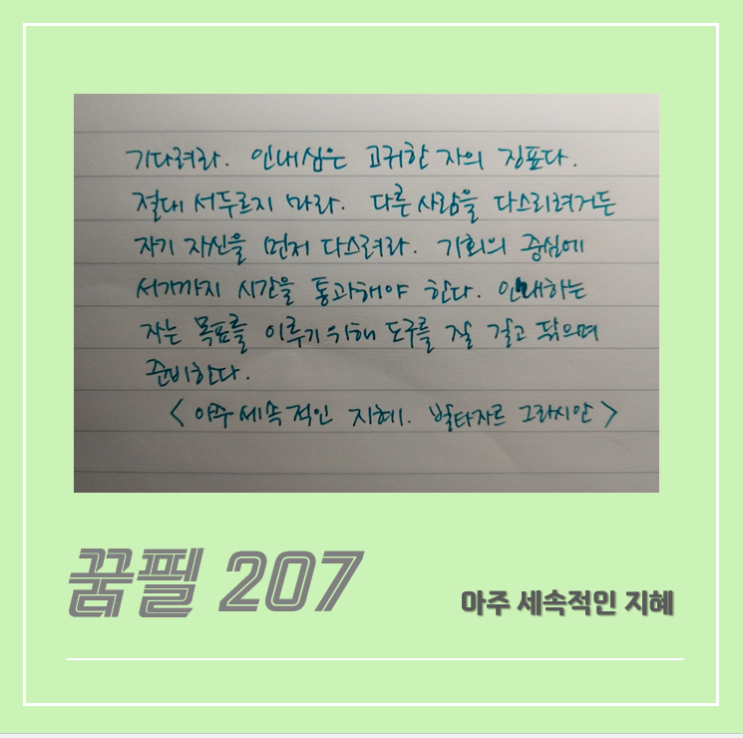 기다려라. 인내심은 고귀한 자의 징표다.
절대 서두르지 마라. 다른 사람을 다스리려거든
자기 자신을 먼저 다스려라. 기회의 중심에
서기까지 시간을 통과해야 한다. 인내하는
자는 목표를 이루기 위해 도구를 잘 걸고 닦으며
준비한다.
<아주 세속적인 지혜. 발타자르 그라시안>
꿈필 207
아주 세속적인 지혜